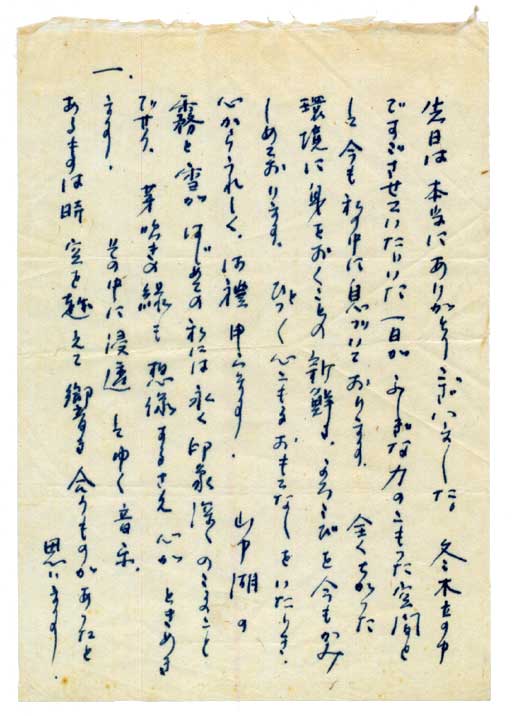 先日は 本当にありがとうございました。 冬木立の中
ですごさせていただいた一日が ふしぎな力のこもった空間と
して 今も 私の中に息づいております。 全くちがった
環境に身をおくことの 新鮮さ、よろこびを今もかみ
しめております。 心こもるおもてなしをいただき、
心からうれしく、御禮申上ます。 山中湖の
霧と雪が はじめての私には 永く印象深くのこること
でせう。 芽吹きの緑も 想像するさえ 心が ときめき
ます。 その中に浸透してゆく音楽。
一.
あるものは時空を越えて 響き合うものがあったと
思います。